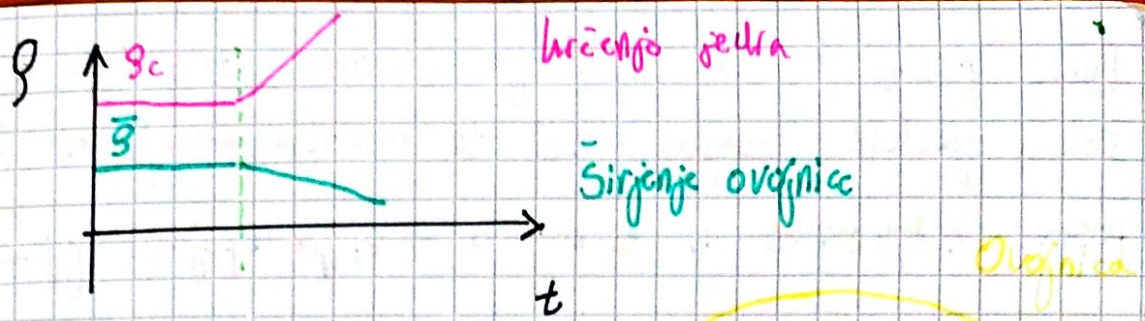 ρ
ρc
krčenje jedra
ρ̄
širjenje ovojnice
Ovojnica
t